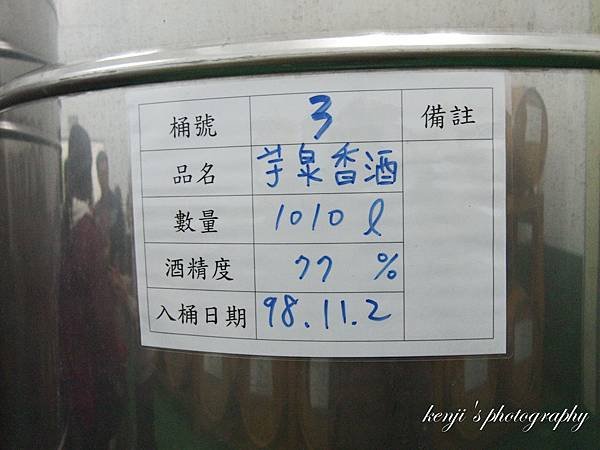 桶號 3 備註
品名 芋泉香酒
數量 1010 ℓ
酒精度 77 %
入桶日期 98.11.2
kenji's photography